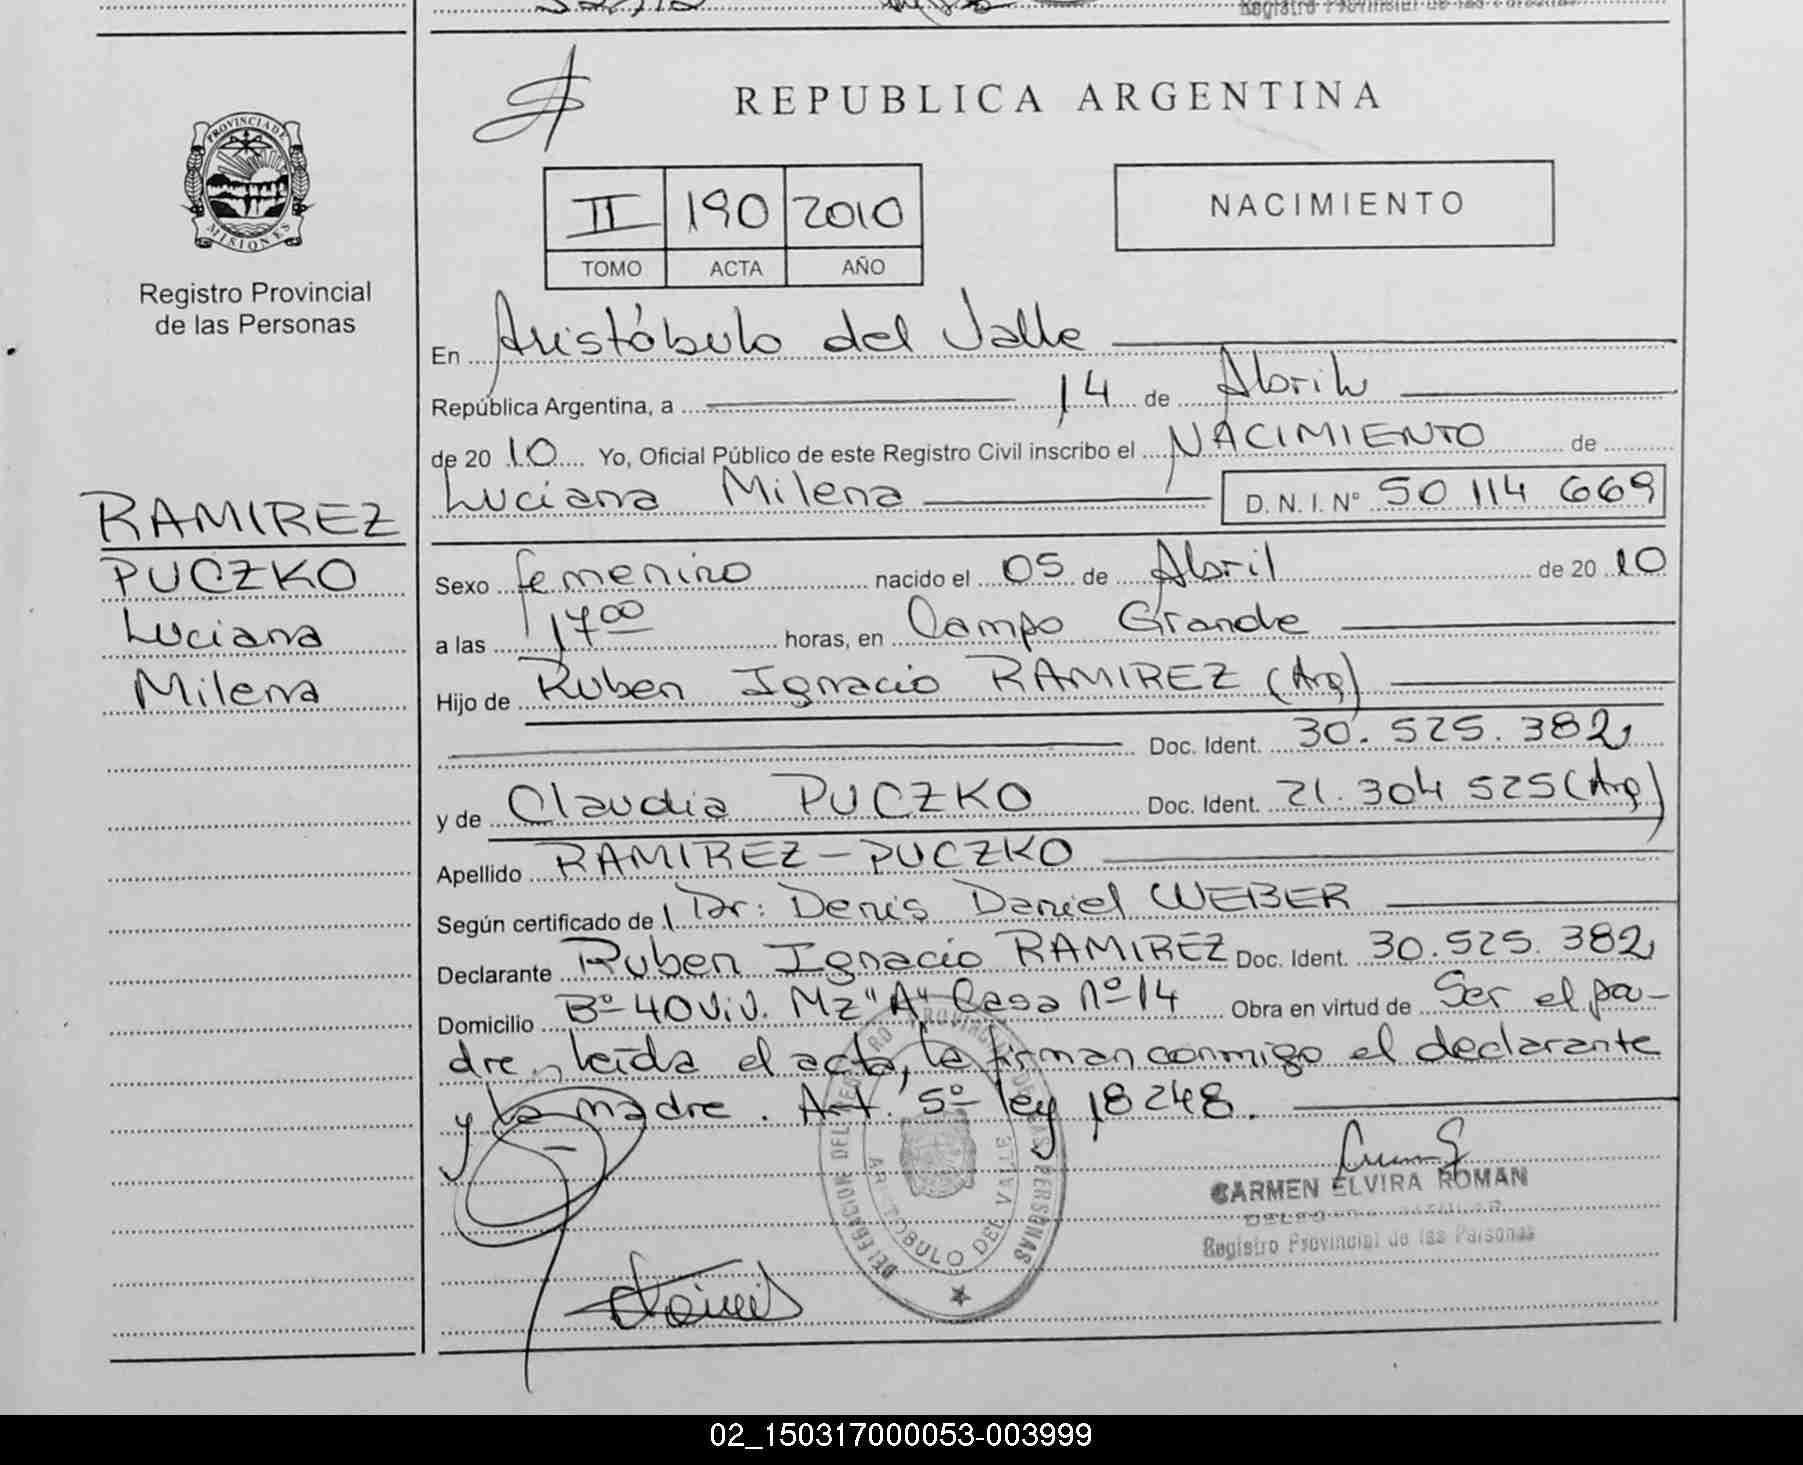 Registro Provincial de las Personas
REPUBLICA ARGENTINA
PROVINCIA DE
MISIONES
Registro Provincial
de las Personas
II 190 2010
TOMO ACTA AÑO
NACIMIENTO
En Aristóbulo del Valle
República Argentina, a 14 de Abril
de 20 10 Yo, Oficial Público de este Registro Civil inscribo el NACIMIENTO de
Luciana Milena D. N. I. Nº 50 114 669
RAMIREZ
PUCZKO
Luciana
Milena
Sexo femenino nacido el 05 de Abril de 20 10
a las 17 00 horas, en Campo Grande
Hijo de Ruben Ignacio RAMIREZ (Arg)
Doc. Ident. 30. 525. 382
y de Claudia PUCZKO Doc. Ident. 21. 304 525 (Arg)
Apellido RAMIREZ - PUCZKO
Según certificado de Dr: Denis Daniel WEBER
Declarante Ruben Ignacio RAMIREZ Doc. Ident. 30. 525. 382
Domicilio Bº 40 Viv. Mz "A" Casa Nº 14 Obra en virtud de Ser el pa-
dre, leída el acta, la firman conmigo el declarante
y la madre. Art. 5º ley 18248.
DELEGACION DEL REGISTRO PROVINCIAL DE LAS PERSONAS
ARISTOBULO DEL VALLE
CARMEN ELVIRA ROMAN
Registro Provincial de las Personas
02_150317000053-003999